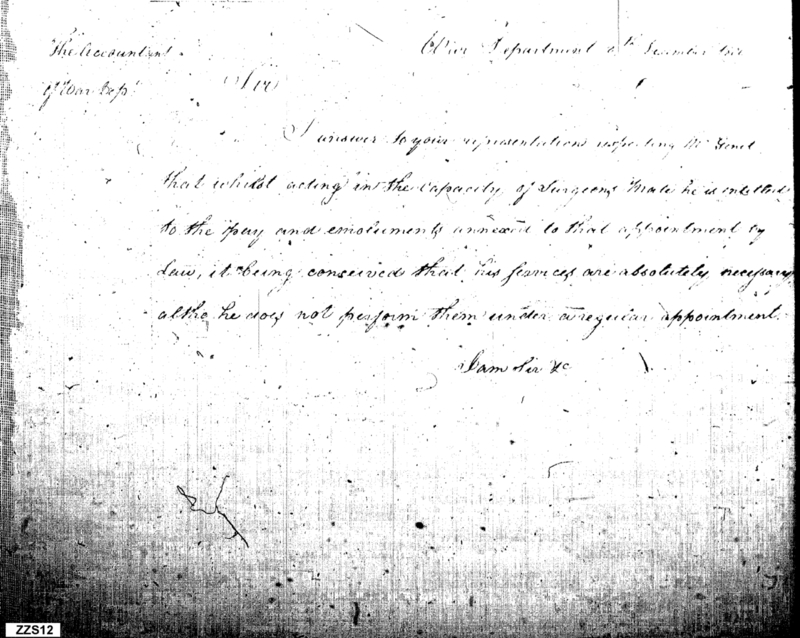 The Accountant War Department 8th December
of War Dep.t Sir
In answer to your representation respecting Mr
that whilst acting in the capacity of Surgeons Mate he is entitled
to the pay and emoluments annexed to that appointment by
Law, it being conceived that his services are absolutely necessary
altho he does not perform them under a regular appointment.
I am Sir &c
ZZS12